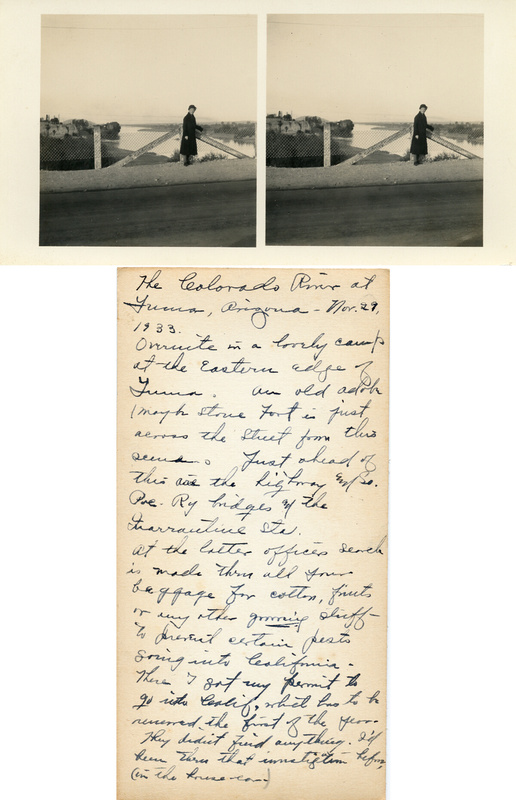 The Colorado River at
Yuma, Arizona - Nov. 29,
1933.
Overnite in a lovely camp
at the Eastern edge of
Yuma. An old adobe
(maybe stone Fort is just
across the street from this
scene. Just ahead of
this are the highway and So.
Pac. Ry bridges & the
Quarrantine Sta.
At the latter officers search
is made thru all your
baggage for cotton, fruits
or any other growing stuff
to prevent certain pests
going into California.
There I got my permit to
go into Calif. which has to be
renewed the first of the year.
They didn't find anything. I'd
been thru that investigation before,
(in the house-car)